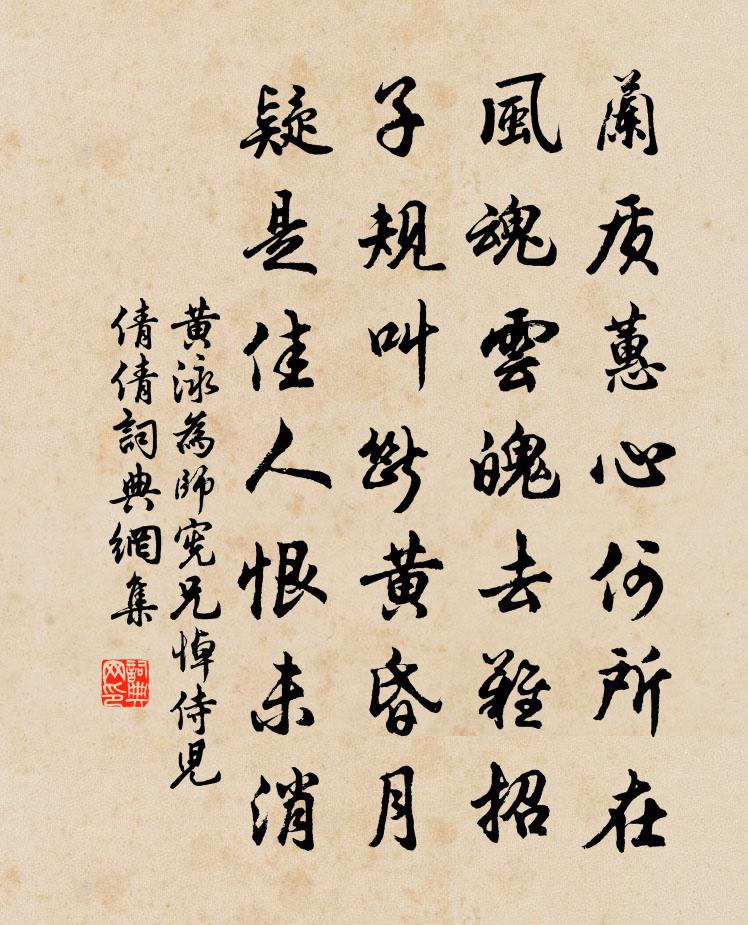 蘭质蕙心何所在
風魂雲魄去難招
子規叫斷黄昏月
疑是佳人恨未消
黄泳為師憲兄悼侍兒
倩倩詞典網集
詞典网印